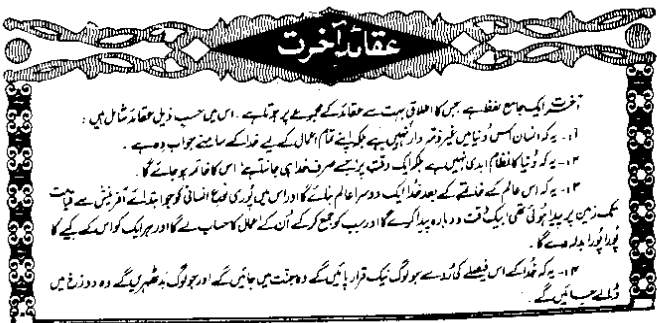 عقائد آخرت
آخرت ایک جامع لفظ ہے جس کا اطلاق بہت سے عقائد کے مجموعے پر ہوتا ہے۔ اس میں حسب ذیل عقائد شامل ہیں:
۱۔ یہ کہ انسان اس دنیا میں غیر ذمہ دار نہیں ہے بلکہ اپنے تمام اعمال کے لیے خدا کے سامنے جواب دہ ہے۔
۲۔ یہ کہ دنیا کا نظام ابدی نہیں ہے بلکہ ایک وقت پر جسے صرف خدا ہی جانتا ہے اس کا خاتمہ ہو جائے گا۔
۳۔ یہ کہ اس عالم کے خاتمے کے بعد خدا ایک دوسرا عالم بنائے گا اور اس میں پوری نوع انسانی کو جو ابتدائے آفرینش سے قیامت
تک زمین پر پیدا ہوئی تھی بیک وقت دوبارہ پیدا کرے گا اور سب کو جمع کر کے اُن کے اعمال کا حساب لے گا اور ہر ایک کو اس کے کیے کا
پورا پورا بدلہ دے گا۔
۴۔ یہ کہ خدا کے اس فیصلے کی رُو سے جو لوگ نیک قرار پائیں گے وہ جنت میں جائیں گے اور جو لوگ بد ٹھہریں گے وہ دوزخ میں
ڈالے جائیں گے۔